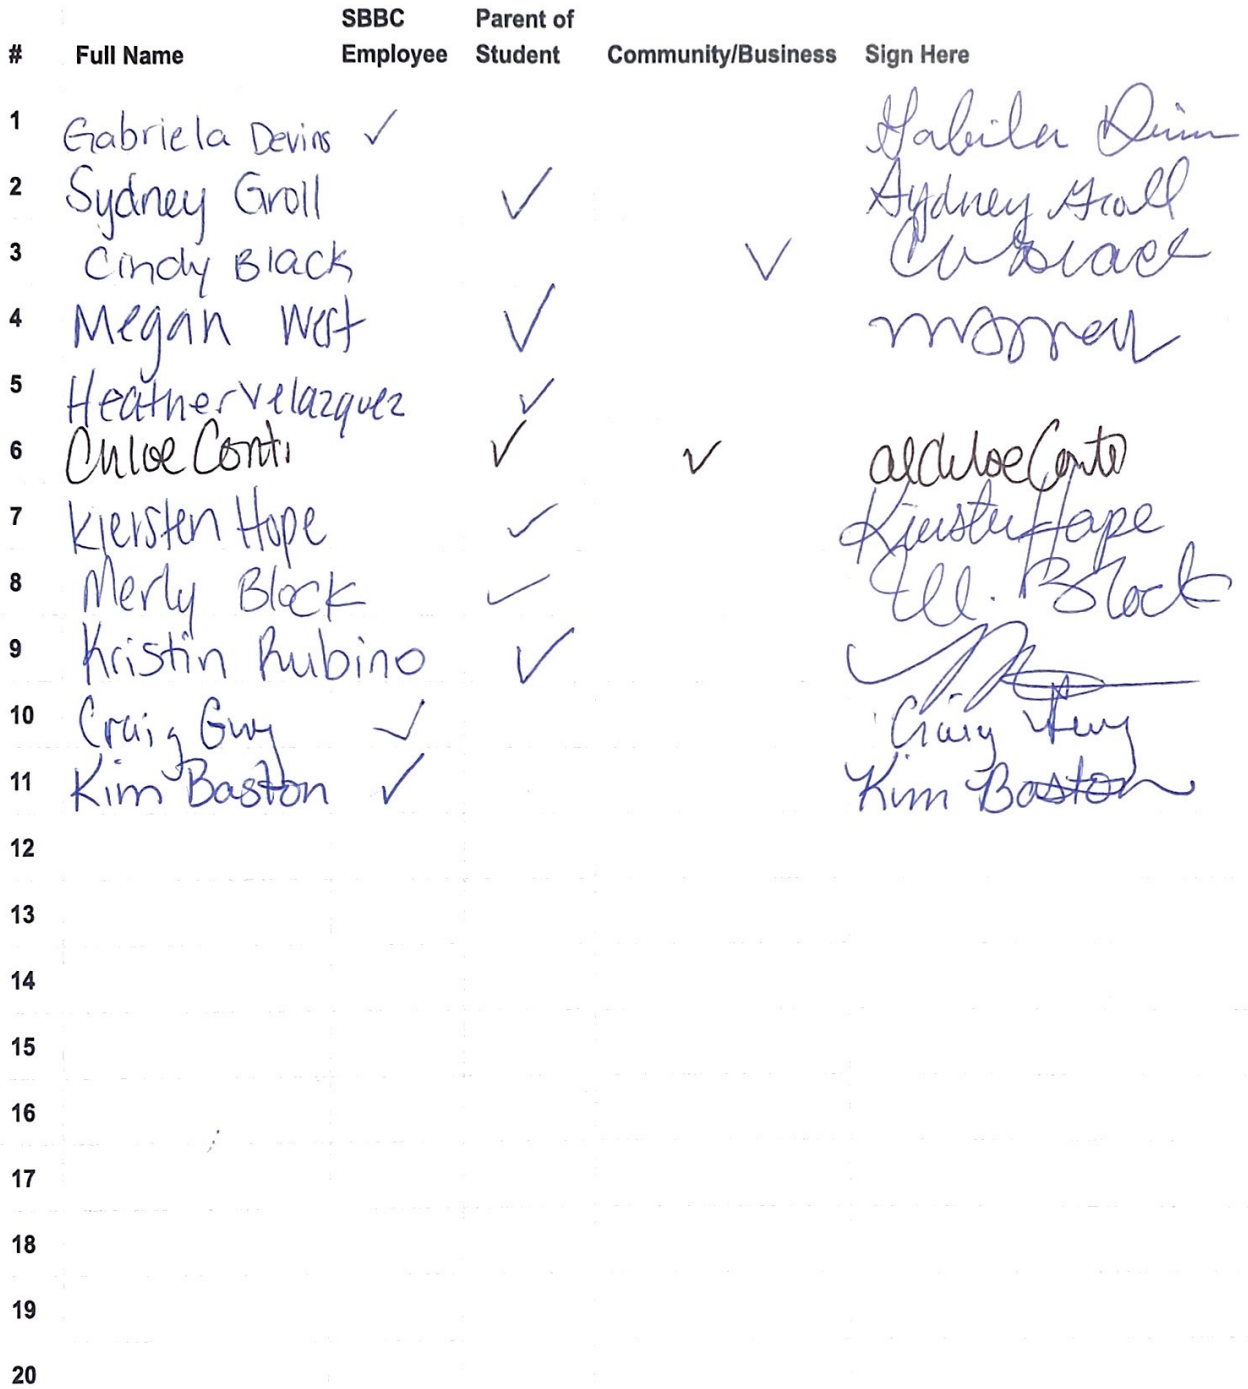 SBBC Parent of
# Full Name Employee Student Community/Business Sign Here
1 Gabriela Devins ✓
2 Sydney Groll ✓ Sydney Groll
3 Cindy Black ✓ Black
4 Megan West ✓
5 Heather Velazquez ✓
6 Chloe Conti ✓ ✓
7 Kiersten Hope ✓ Kiersten Hope
8 Merly Block ✓ M. Block
9 Kristin Rubino ✓
10 Craig Guy ✓ Craig Guy
11 Kim Baston ✓ Kim Baston
12
13
14
15
16
17
18
19
20